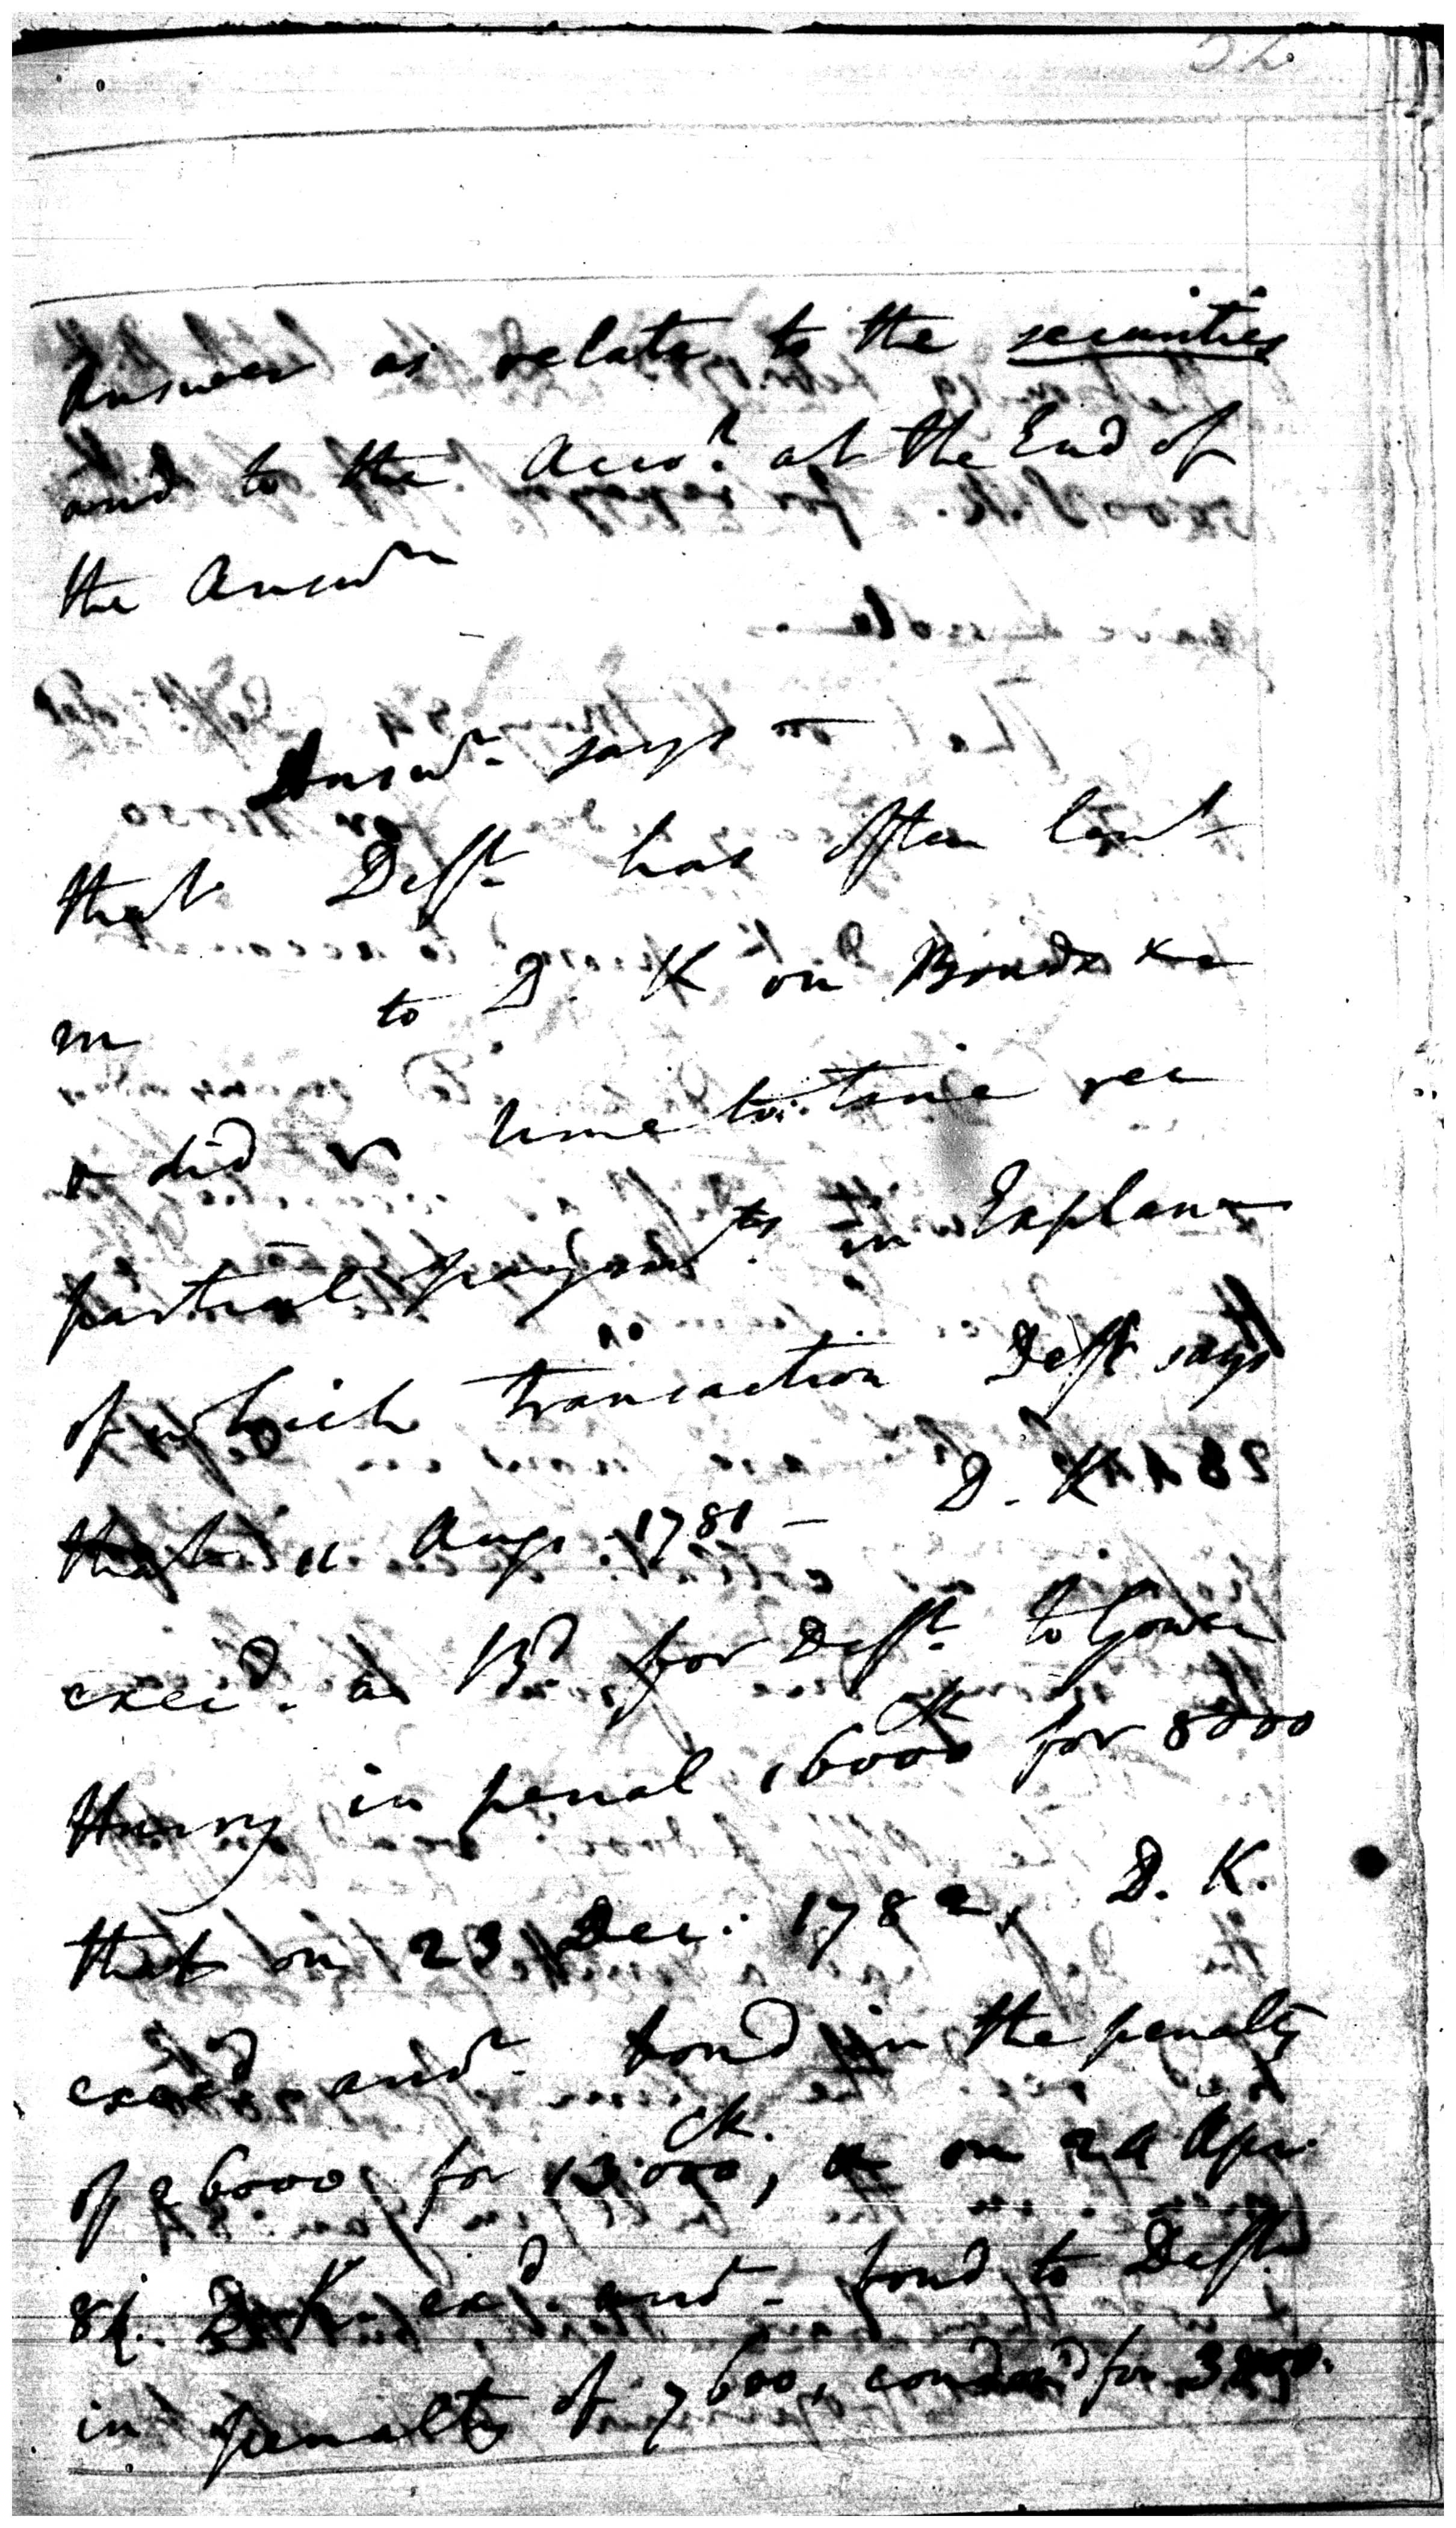 52
Answer as relate to the securities
and to the Acco.t at the End of
the Answr
Answr says —
that Deft has often lent
m to D. K on Bonds &c
& did time to time rec
partial paymts in Explan
of which transaction Deft says
that 11 Aug. 1781 — D. K
execd. a Bd for Deft to Gowen
Hurry in penal 16000 for 8000
that on 23 Dec. 1782, D. K.
execd anor bond in the penalty
of 26000 for 13.000, & on 24 Apr.
84. D. K. exd. anor bond to Deft
in penalty of 7600, condd for 3800.